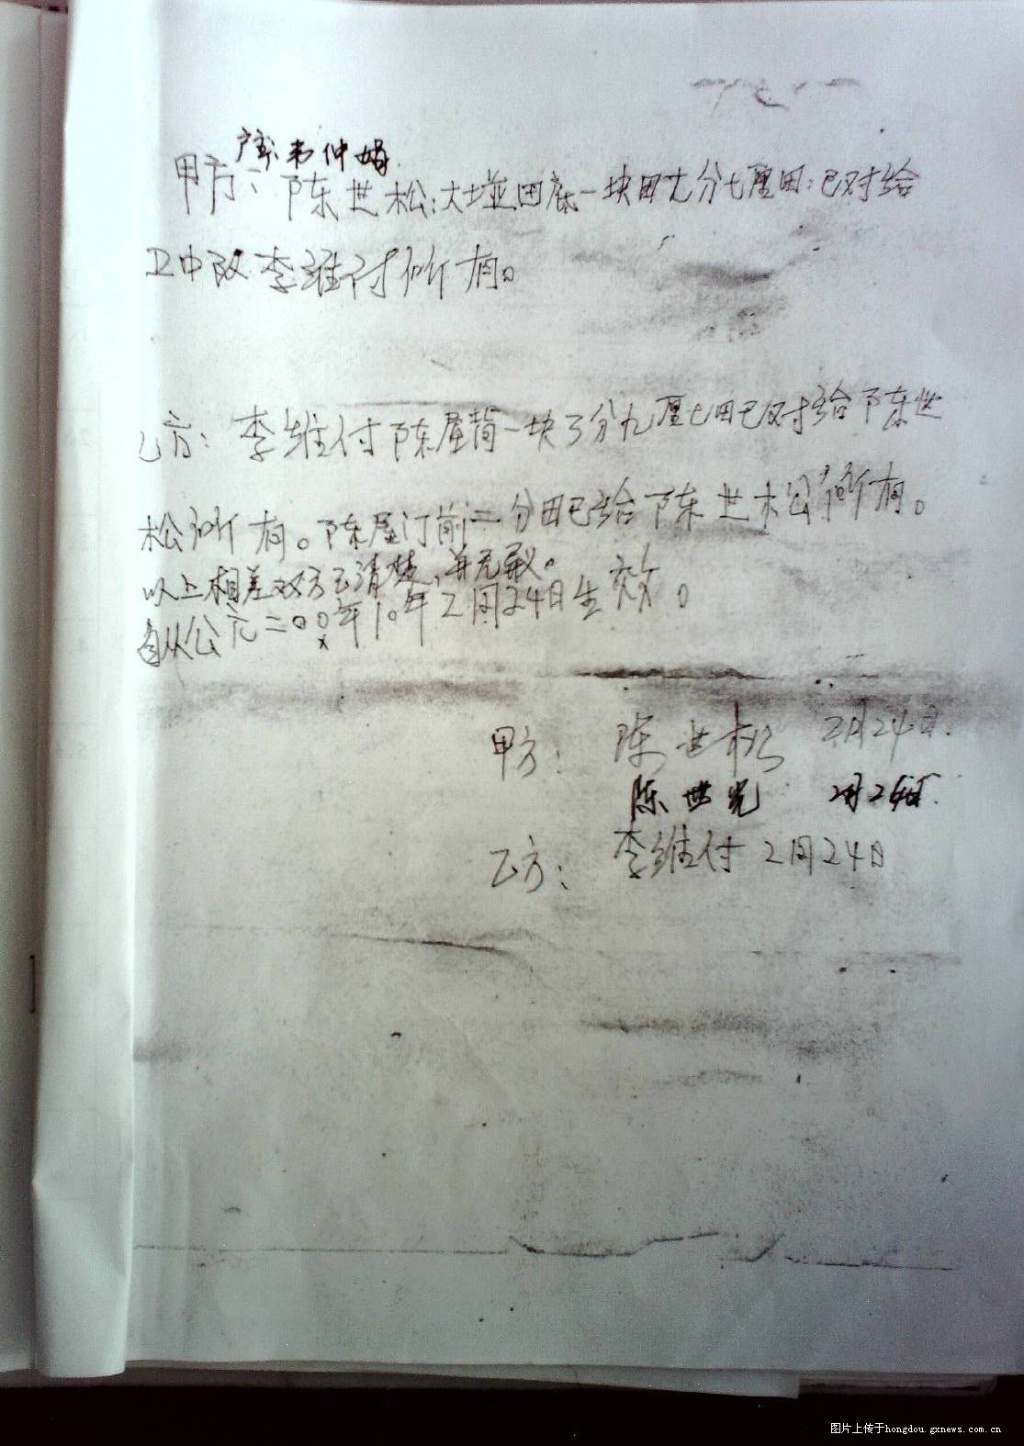 户主韦仲娟
甲方：陈世松:大垃田底一块田尤分七厘田:已对给
卫中队李维付所有。
乙方：李维付陈屋背一块3分九厘七田已对给陈世
松所有。陈屋门前二分田已给陈世松所有。
以上相差双方已清楚,并无异议。
自从公元二00年10年2月24日生效。
甲方：陈世松 2月24日.
陈世光 2月24日.
乙方：李维付 2月24日
图片上传于hongdou.gxnews.com.cn